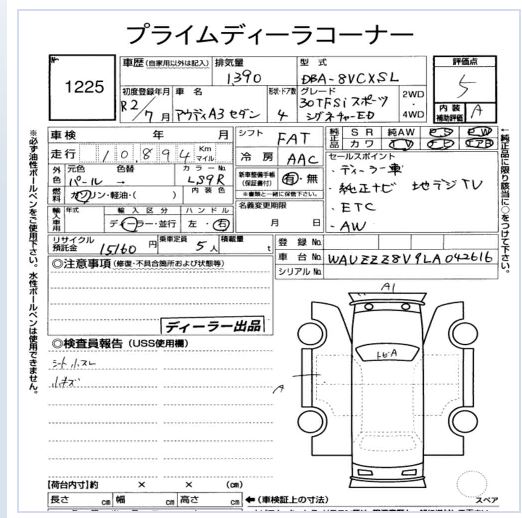 プライムディーラコーナー
No 1225
車歴 (自家用以外は記入) 排気量 1,390 型式 DBA-8VCXSL 評価点 5
初度登録年月 R2/7月 車名 アウディA3セダン 形状・ドア数 4 グレード 30TFSiスポーツ シグネチャーED 2WD・4WD 内装補助評価 A
車検 年 月 シフト FAT 純正品 SR 純AW PS PW
カワ TV ナビ エアB
走行 10,894 Km マイル 冷房 AAC セールスポイント
・ディーラー車
・純正ナビ 地デジTV
・ETC
・AW
外色 元色 パール → 色替 カラーNo. LS9R 新車整備手帳(保証書付) 有・無
燃料 ガソリン・軽油・( ) 内装色 ※車検と一緒に保管下さい。
輸入車用 年式 輸入区分 ディーラー・並行 ハンドル 左・右 名義変更期限 月 日
リサイクル預託金 15160円 乗車定員 5人 積載量 t 登録No.
車台No. WAUZZZ8V9LA042616
シリアルNo.
◎注意事項 (修復・不具合箇所および状態等)
ディーラー出品
◎検査員報告 (USS使用欄)
シート小スレ
小キズ
A1
トビA
A
【荷台内寸】約 × × (cm)
長さ cm 幅 cm 高さ cm
← (車検証上の寸法)
スペア
※必ず油性ボールペンをご使用下さい。水性ボールペンは使用できません。
←純正品に限り該当に○をつけて下さい。